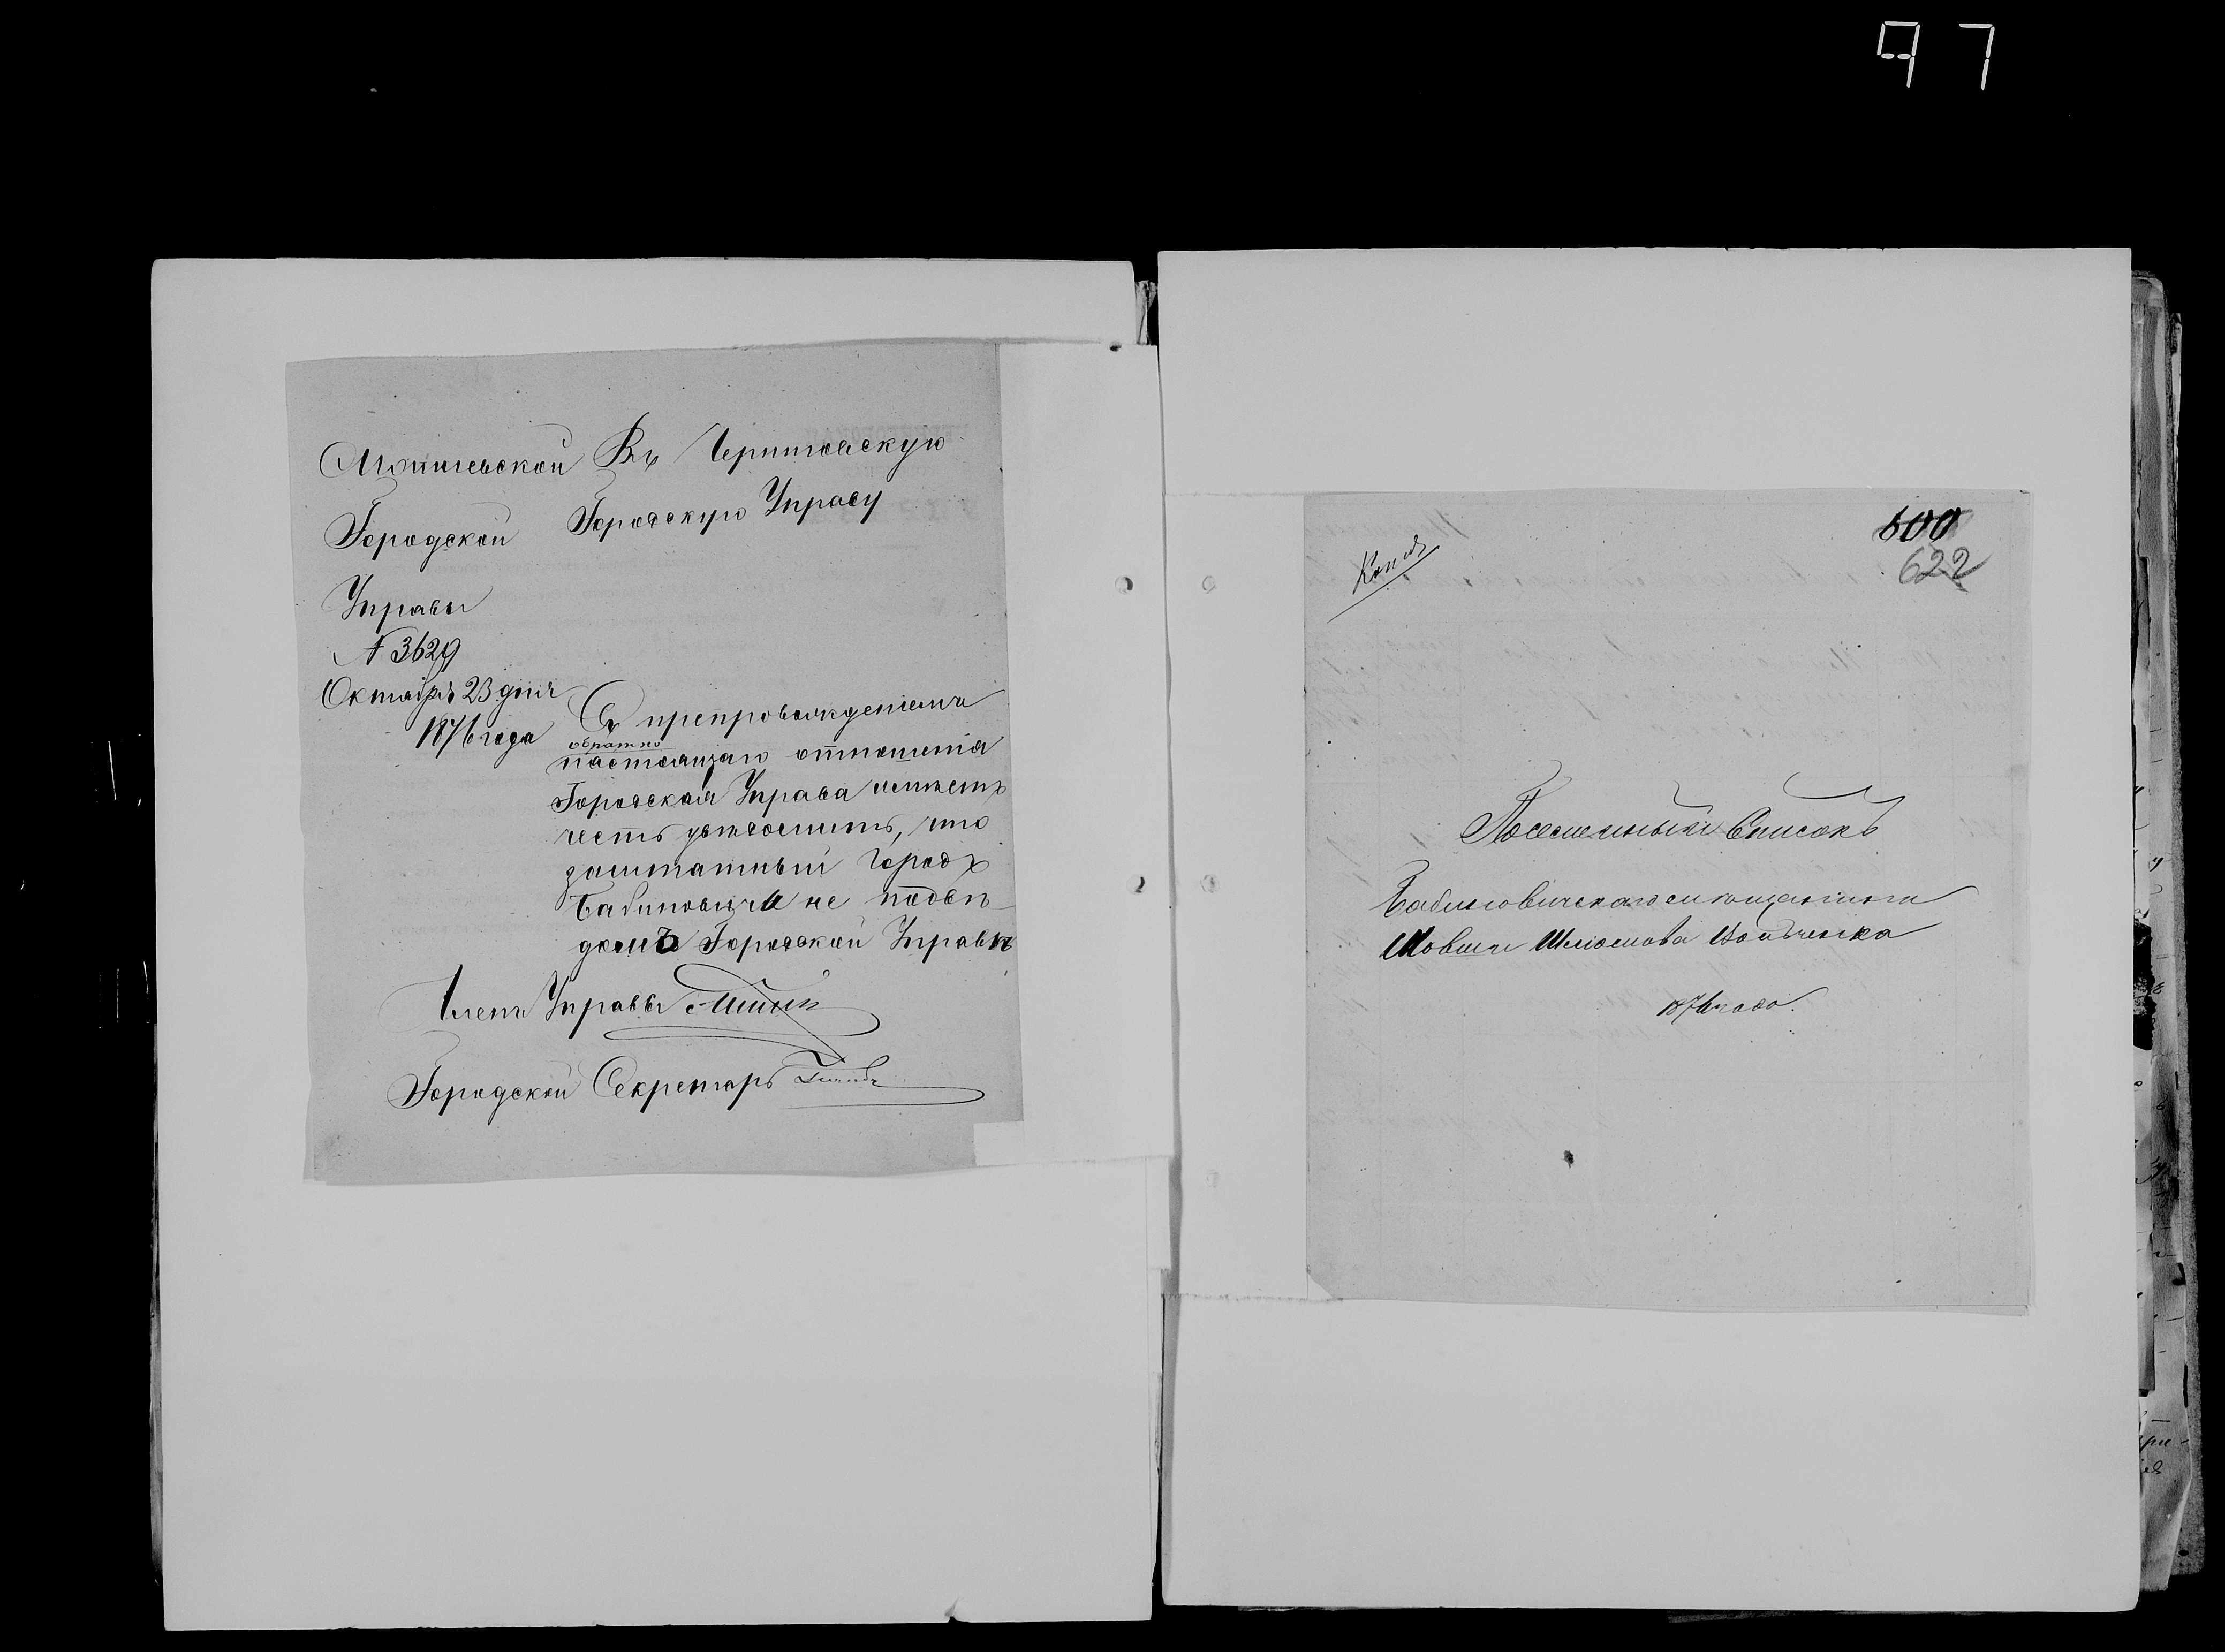 97
Могилевской
Городской
Управы
№ 3629
Октября 23 дня
1876 года
Въ Черниговскую
Городскую Управу
Съ препровожденіемъ
обратно
настоящаго отношенія
Городская Управа имѣетъ
честь увѣдомить, что
заштатный городъ
Бабиновичи не подвѣ-
домъ Городской Управѣ
Членъ Управы
Городской Секретарь
Копія
600
622
Посемейный Списокъ
Бабиновичскаго мѣщанина
Мовши Шлiомова
1876 года